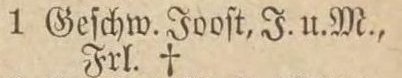 1 Geschw. Joost, J. u. M.,
Frl. †